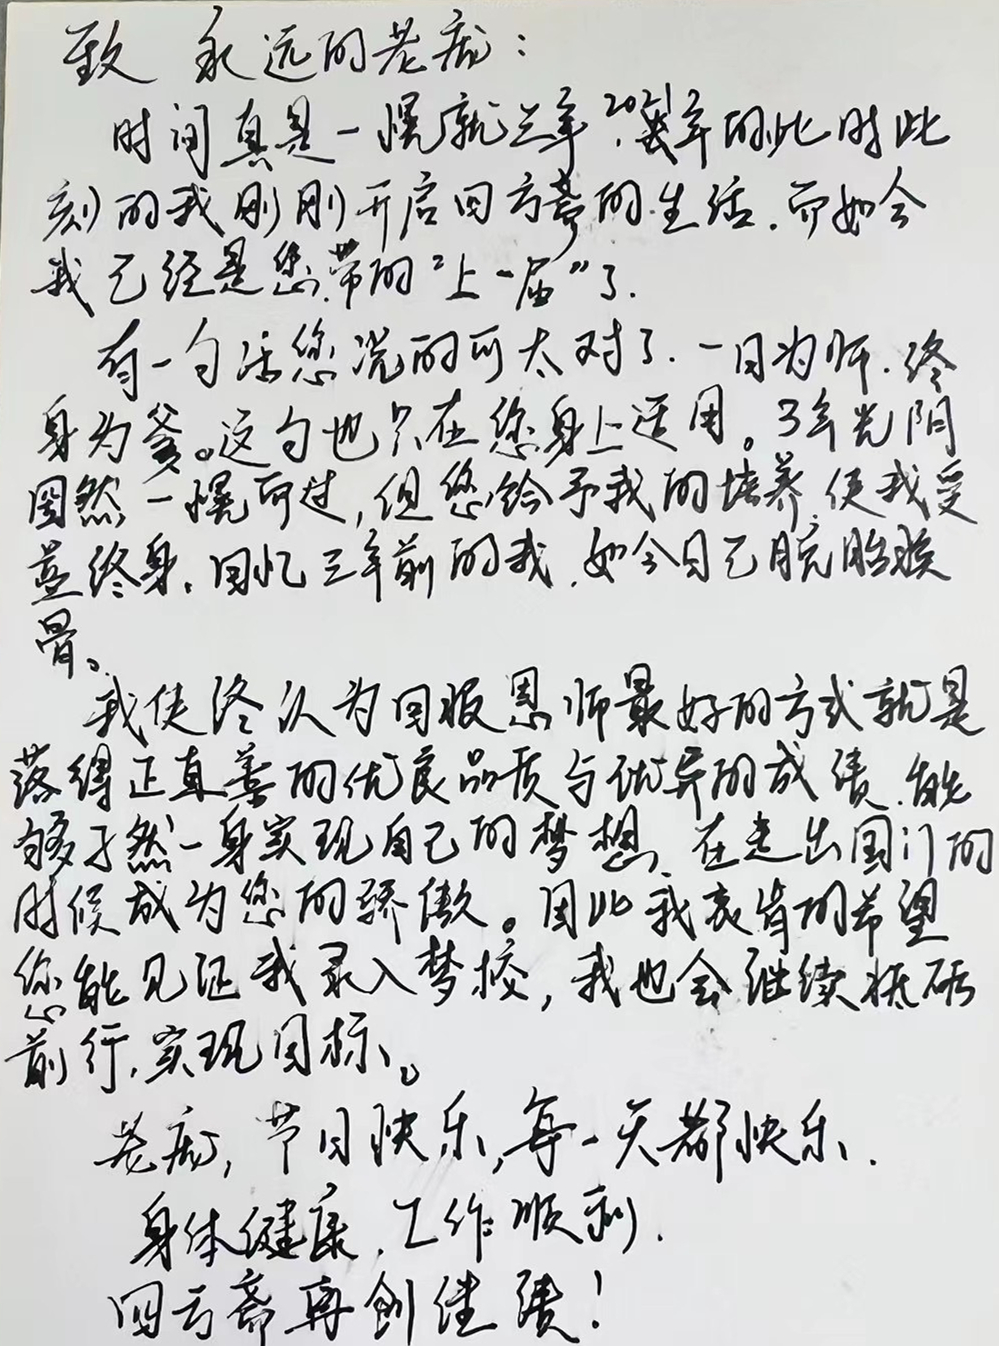 致 永远的老庞：
时间真是一慌就三年，2021年的此时此
刻的我刚刚开启四亏斋的生活.而如今
我已经是您带的“上一届”了.
有一句话您说的可太对了.一日为师.终
身为爹。这句也只在您身上适用。3年光阴
固然一慌而过，但您给予我的培养.使我受
益终身.回忆三年前的我.如今日已脱胎换
骨。
我使终认为回报恩师最好的方式就是
落得正直善的优良品质与优异的成绩.能
够孑然一身实现自己的梦想.在走出国门的
时候成为您的骄傲。因此我衷肯的希望
您能见证我录入梦校，我也会继续砥砺
前行.实现目标。
老庞，节日快乐，每一天都快乐.
身体健康.工作顺利.
四亏斋再创佳绩！